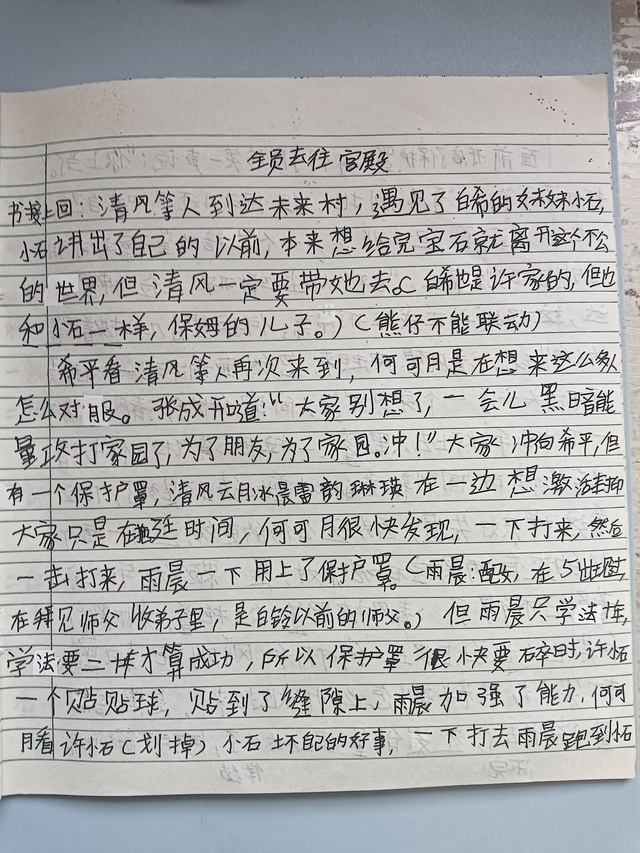 全员去往宫殿
书接上回：清风等人到达未来村，遇见了白希的妹妹小石，
小石讲出了自己的以前，本来想给完宝石就离开这个不公
的世界，但清风一定要带她去。白希也是许家的，但也
和小石一样，保姆的儿子。）（熊仔不能联动）
希平看清风等人再次来到，何可月是在想来这么多人
怎么对服。张成开道！“大家别想了，一会儿黑暗能
量攻打家园了，为了朋友，为了家园。冲！”大家冲向希平，但
有一个保护罩，清风云月冰晨雷韵琳瑛在一边想激活封印
大家只是在拖延时间，何可月很快发现，一下打来，然后
一击打来，雨晨一下用上了保护罩。（雨晨：配文，在5出现，
在拜见师父收弟子里，是白铃以前的师父。）但雨晨只学法一半，
学法要二半才算成功，所以保护罩很快要碎时，许小石
一个贴贴球，贴到了缝隙上，雨晨加强了能力，何可
月看许小石（划掉）小石坏自己的好事，一下打去雨晨跑到小石